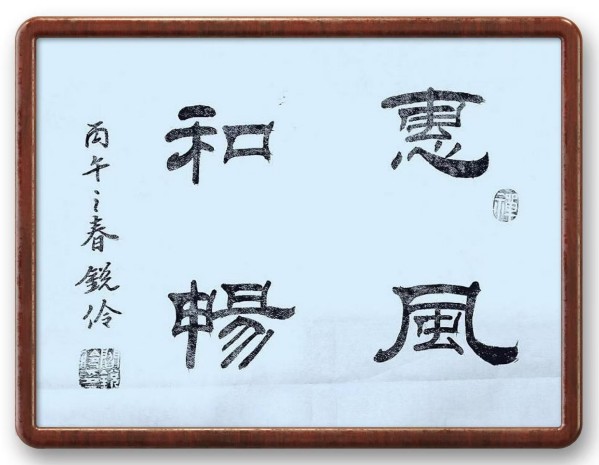 惠風
和暢
丙午之春銳伶